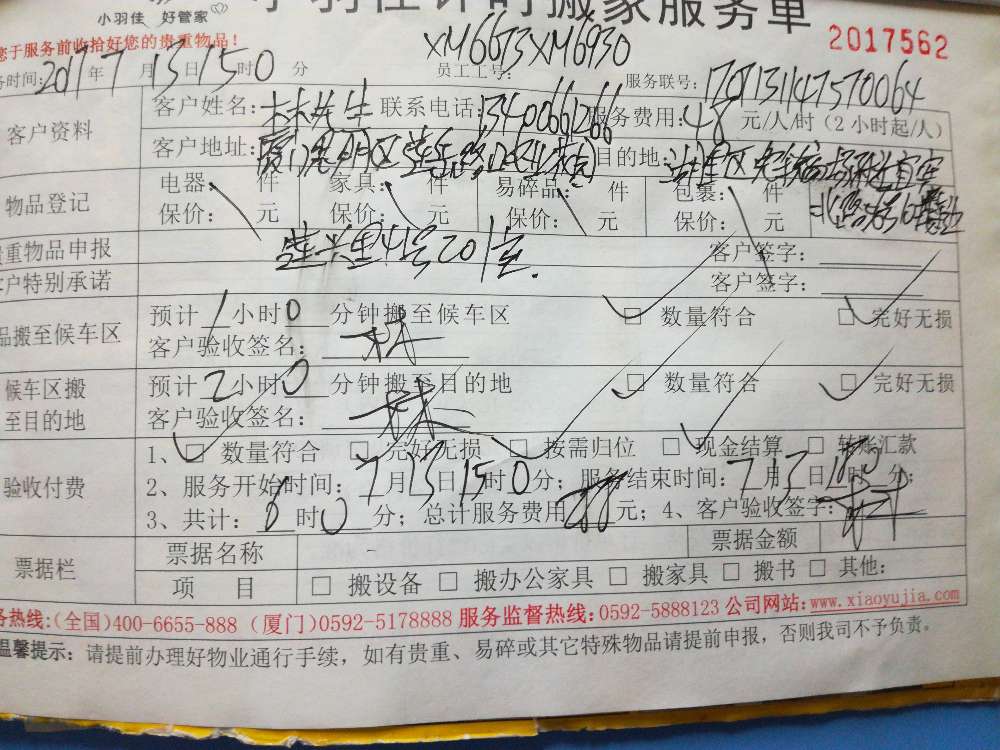 小羽佳 好管家 小羽佳计时搬家服务单
您于服务前收拾好您的贵重物品! XM6673XM6930 2017562
务时间: 2017年7月13日15时0分 员工工号: 服务联号: 1707131147570064
客户资料 客户姓名: 林先生 联系电话: 13400661266 服务费用: 48元/人/时 (2小时起/人)
客户地址: 厦门思明区莲岳路 目的地: 湖里区
物品登记 电器: 件 家具: 件 易碎品: 件 包裹: 件
保价: 元 保价: 元 保价: 元 保价: 元
贵重物品申报 莲兴里 201室. 客户签字:
客户特别承诺 客户签字:
品搬至候车区 预计1小时0分钟搬至候车区 □ 数量符合 □ 完好无损
客户验收签名:
候车区搬至目的地 预计2小时0分钟搬至目的地 □ 数量符合 □ 完好无损
客户验收签名:
验收付费 1、□ 数量符合 □ 完好无损 □ 按需归位 □ 现金结算 □ 转账汇款
2、服务开始时间: 7月13日15时0分; 服务结束时间: 7月13日 时 分;
3、共计: 时0分; 总计服务费用 元; 4、客户验收签字:
票据栏 票据名称 - 票据金额
项 目 □ 搬设备 □ 搬办公家具 □ 搬家具 □ 搬书 □ 其他:
务热线:(全国)400-6655-888 (厦门)0592-5178888 服务监督热线:0592-5888123 公司网站:www.xiaoyujia.com
温馨提示: 请提前办理好物业通行手续，如有贵重、易碎或其它特殊物品请提前申报，否则我司不予负责。